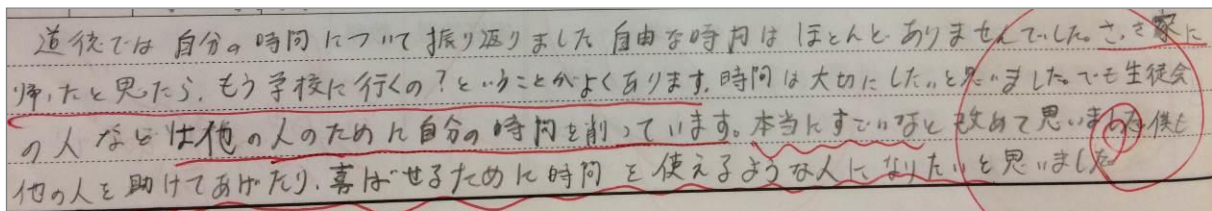 道徳では自分の時間について振り返りました自由な時間はほとんどありませんでした。さっき家に
帰ったと思ったら、もう学校に行くの？ということがよくあります。時間は大切にしたいと思いました。でも生徒会
の人などは他の人のために自分の時間を削っています。本当にすごいなと改めて思いま 僕も
他の人を助けてあげたり、喜ばせるために時間を使えるような人になりたいと思いました